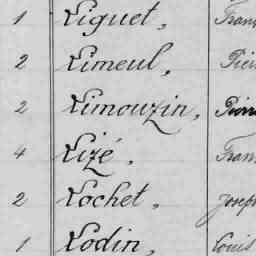 1 Liguet, Fran
2 Limeul, Pier
2 Limouzin, Pierr
4 Lizé, Fran
2 Lochet, Josep
1 Lodin, Louis